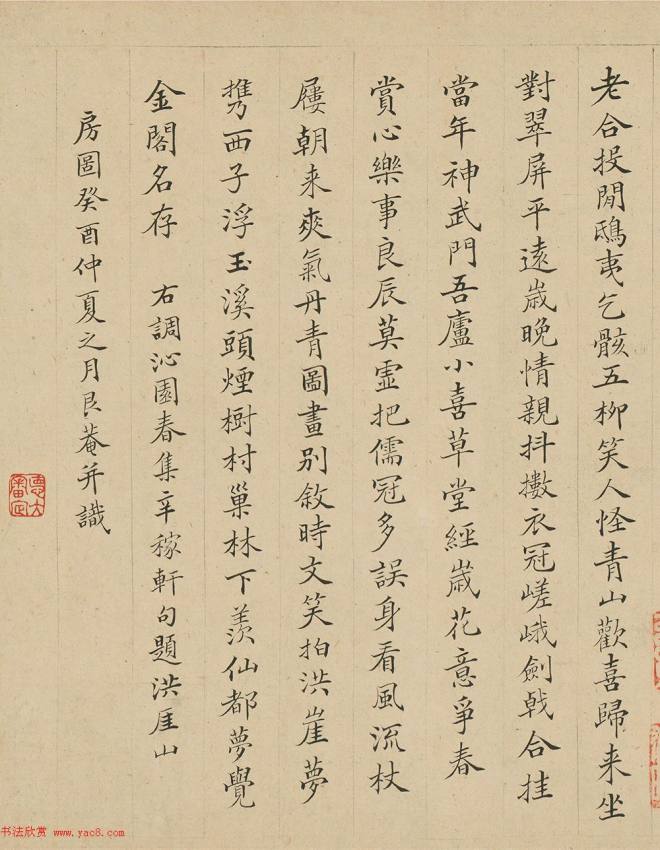 老合投閒鴟夷乞骸五柳笑人怪青山歡喜歸来坐
對翠屏平遠嵗晚情親抖擻衣冠嵯峨劍戟合挂
當年神武門吾廬小喜草堂經嵗花意爭春
賞心樂事良辰莫虛把儒冠多誤身看風流杖
屨朝来爽氣丹青圖畫别敘時文笑拍洪崖夢
携西子浮玉溪頭煙樹村巢林下羨仙都夢覺
金閣名存　右調沁園春集辛稼軒句題洪厓山
房圖癸酉仲夏之月艮菴并識
书法欣赏 www.yac8.com